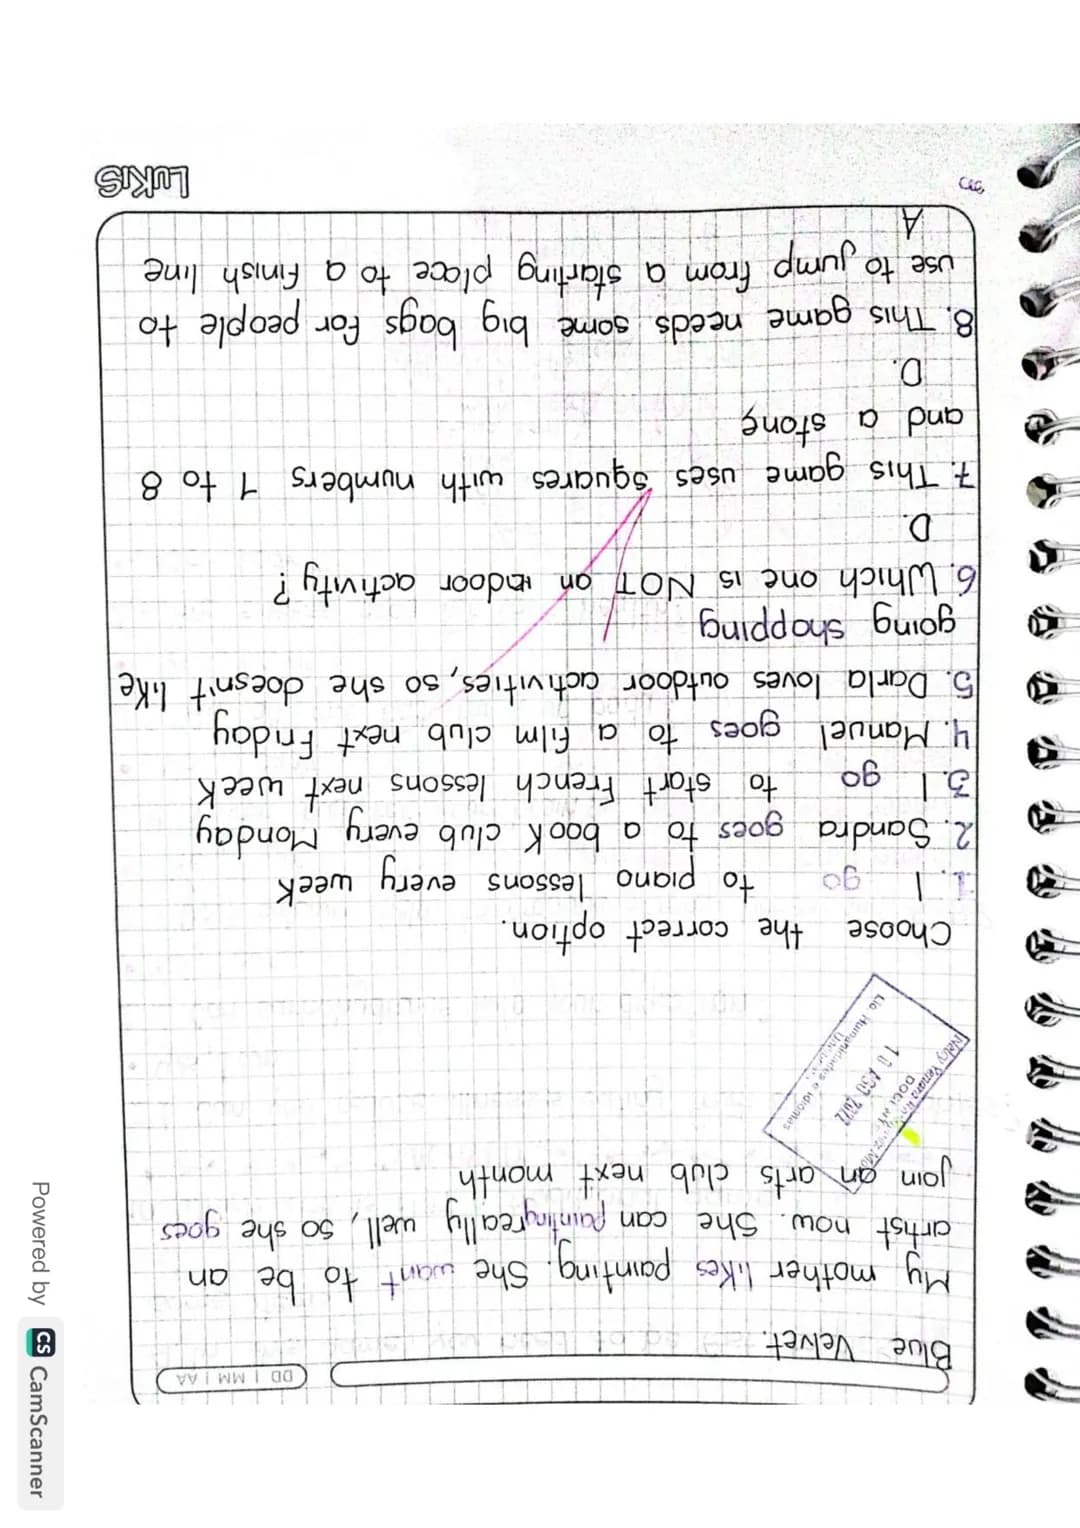 DD | MM | AA
Blue Velvet.
My mother likes painting. She want to be an
artist now. She can painting really well, so she goes
join an arts club next month
10 AGO 2022
Lic Humanidades e Idiomas
Choose the correct option.
1. I go to piano lessons every week
2. Sandra goes to a book club every Monday
3. I go to start French lessons next week
4. Manuel goes to a film club next Friday
5. Darla loves outdoor activities, so she doesn't like
going shopping
6. Which one is NOT an indoor activity?
D.
7. This game uses squares with numbers 1 to 8
and a stone
D.
8. This game needs some big bags for people to
use to jump from a starting place to a finish line
A
LUKIS
Powered by CS CamScanner